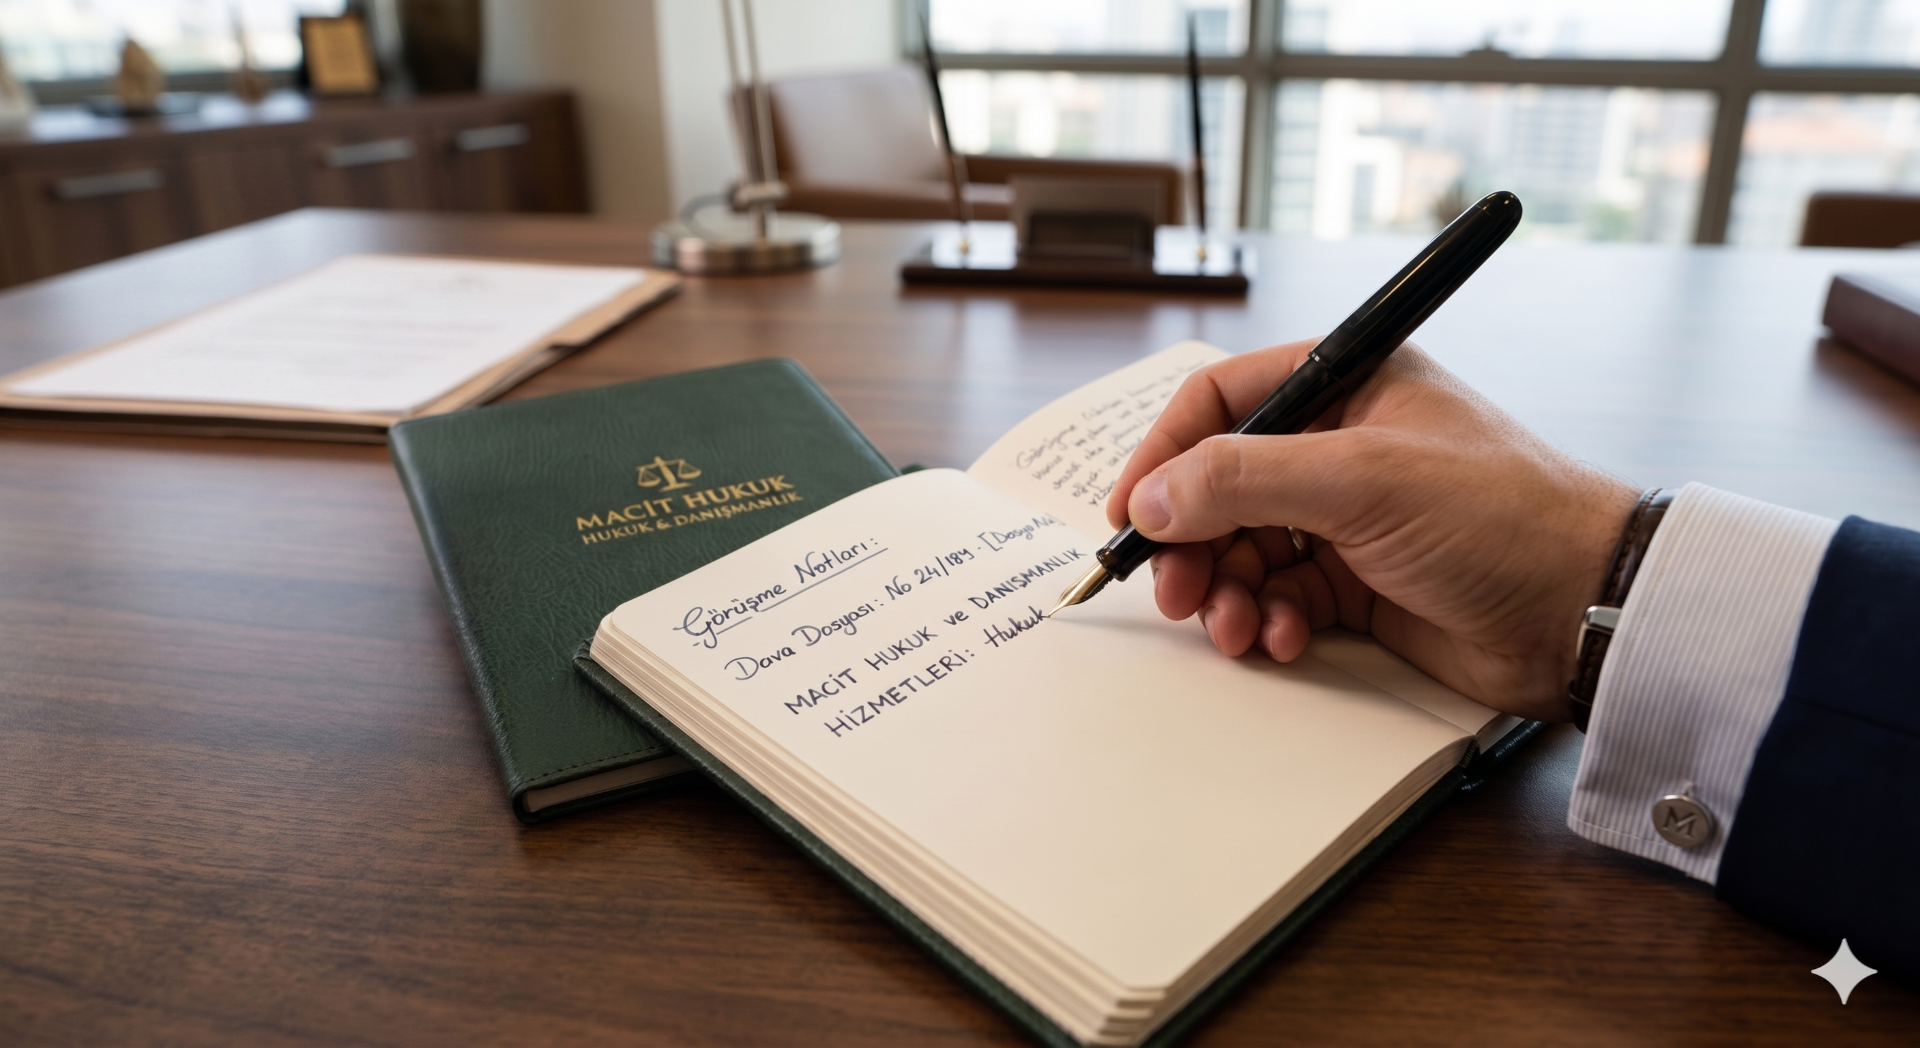 MACİT HUKUK
HUKUK & DANIŞMANLIK
Görüşme Notları:
Dava Dosyası: No 24/189 - [Dosya No]
MACİT HUKUK ve DANIŞMANLIK
HİZMETLERİ: Hukuk
M